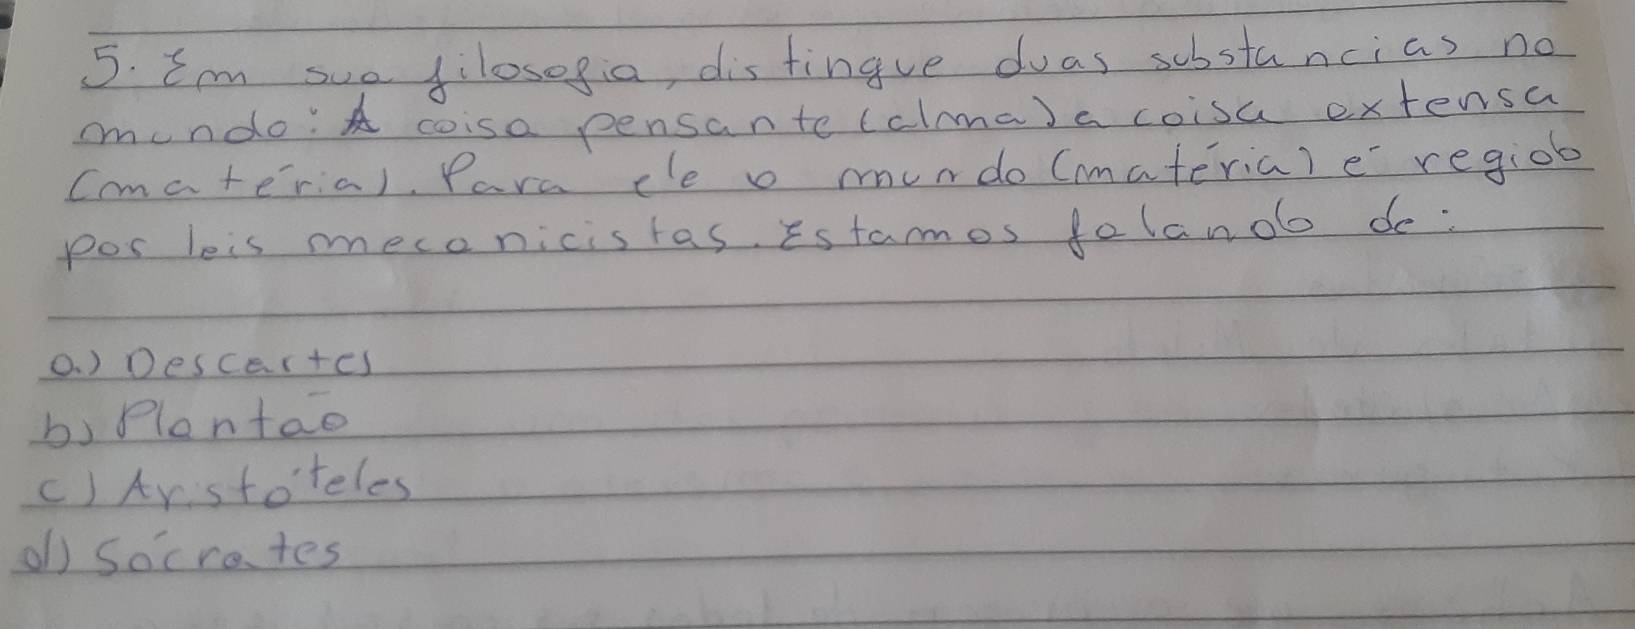 5. Em sua filosofia, distingue duas substancias no
mundo: A coisa pensante (alma) a coisa extensa
(matéria). Para ele o mundo (matéria) é regido
por leis mecanicistas. Estamos falando de:
a.) Descartes
b) Plantão
c) Aristóteles
d) Sócrates